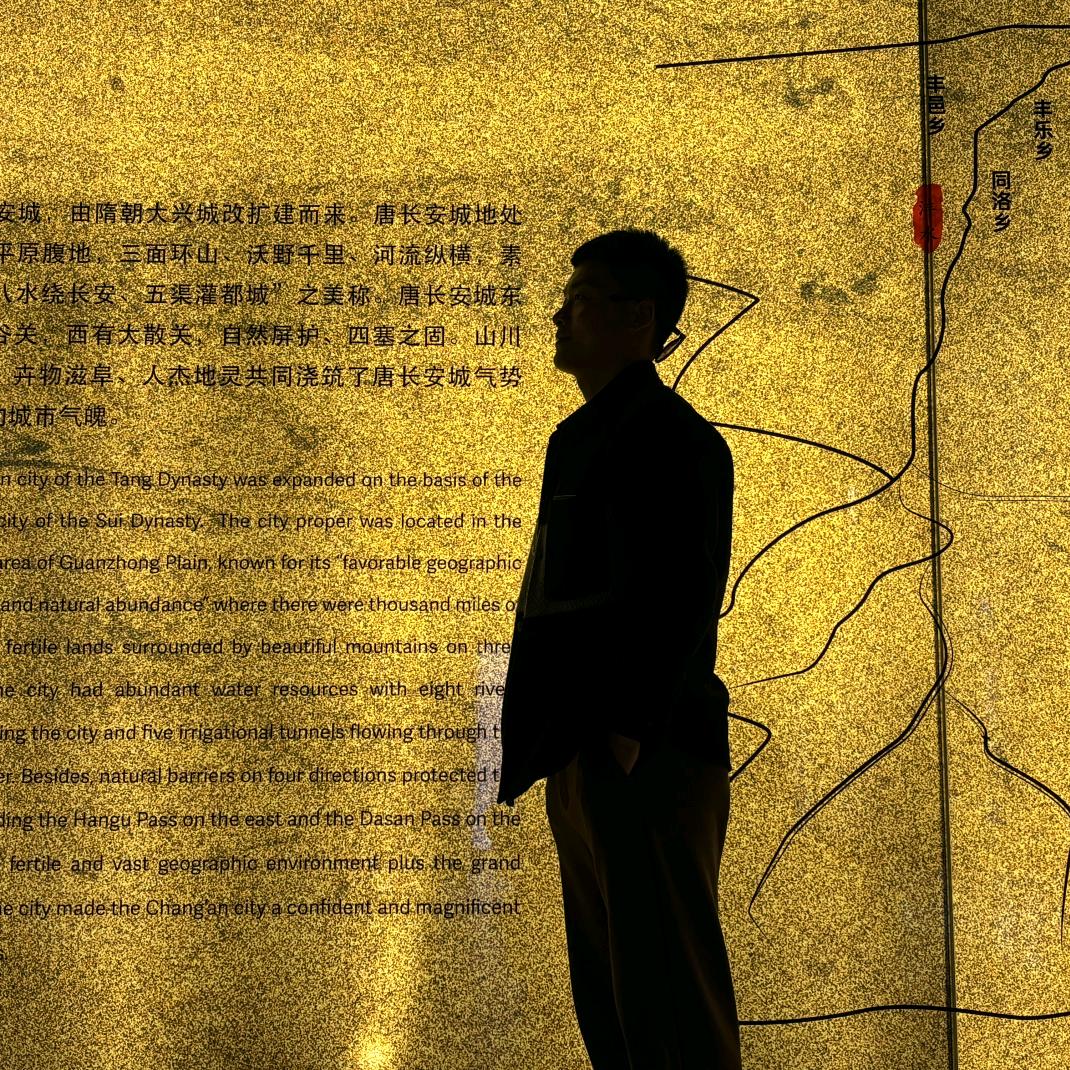 安城，由隋朝大兴城改扩建而来。唐长安城地处
平原腹地，三面环山、沃野千里、河流纵横，素
八水绕长安、五渠灌都城”之美称。唐长安城东
谷关，西有大散关，自然屏护、四塞之固。山川
，卉物滋阜、人杰地灵共同浇筑了唐长安城气势
的城市气魄。
n city of the Tang Dynasty was expanded on the basis of the
city of the Sui Dynasty. The city proper was located in the
area of Guanzhong Plain, known for its "favorable geographic
and natural abundance" where there were thousand miles o
fertile lands surrounded by beautiful mountains on thre
he city had abundant water resources with eight rive
ing the city and five irrigational tunnels flowing through t
er. Besides, natural barriers on four directions protected t
ding the Hangu Pass on the east and the Dasan Pass on the
fertile and vast geographic environment plus the grand
he city made the Chang'an city a confident and magnificent
丰邑乡
丰乐乡
同洛乡